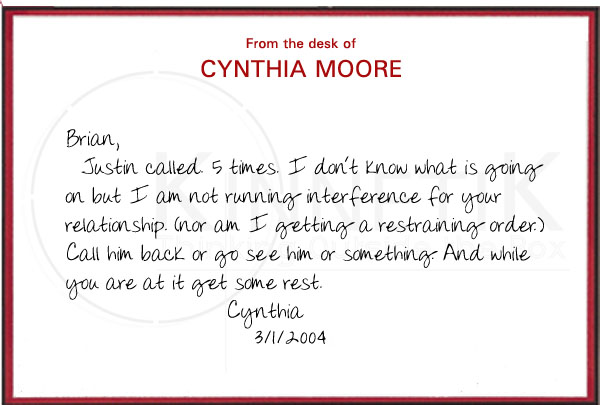 From the desk of
CYNTHIA MOORE
Brian,
Justin called. 5 times. I don't know what is going
on but I am not running interference for your
relationship. (nor am I getting a restraining order.)
Call him back or go see him or something. And while
you are at it get some rest.
Cynthia
3/1/2004